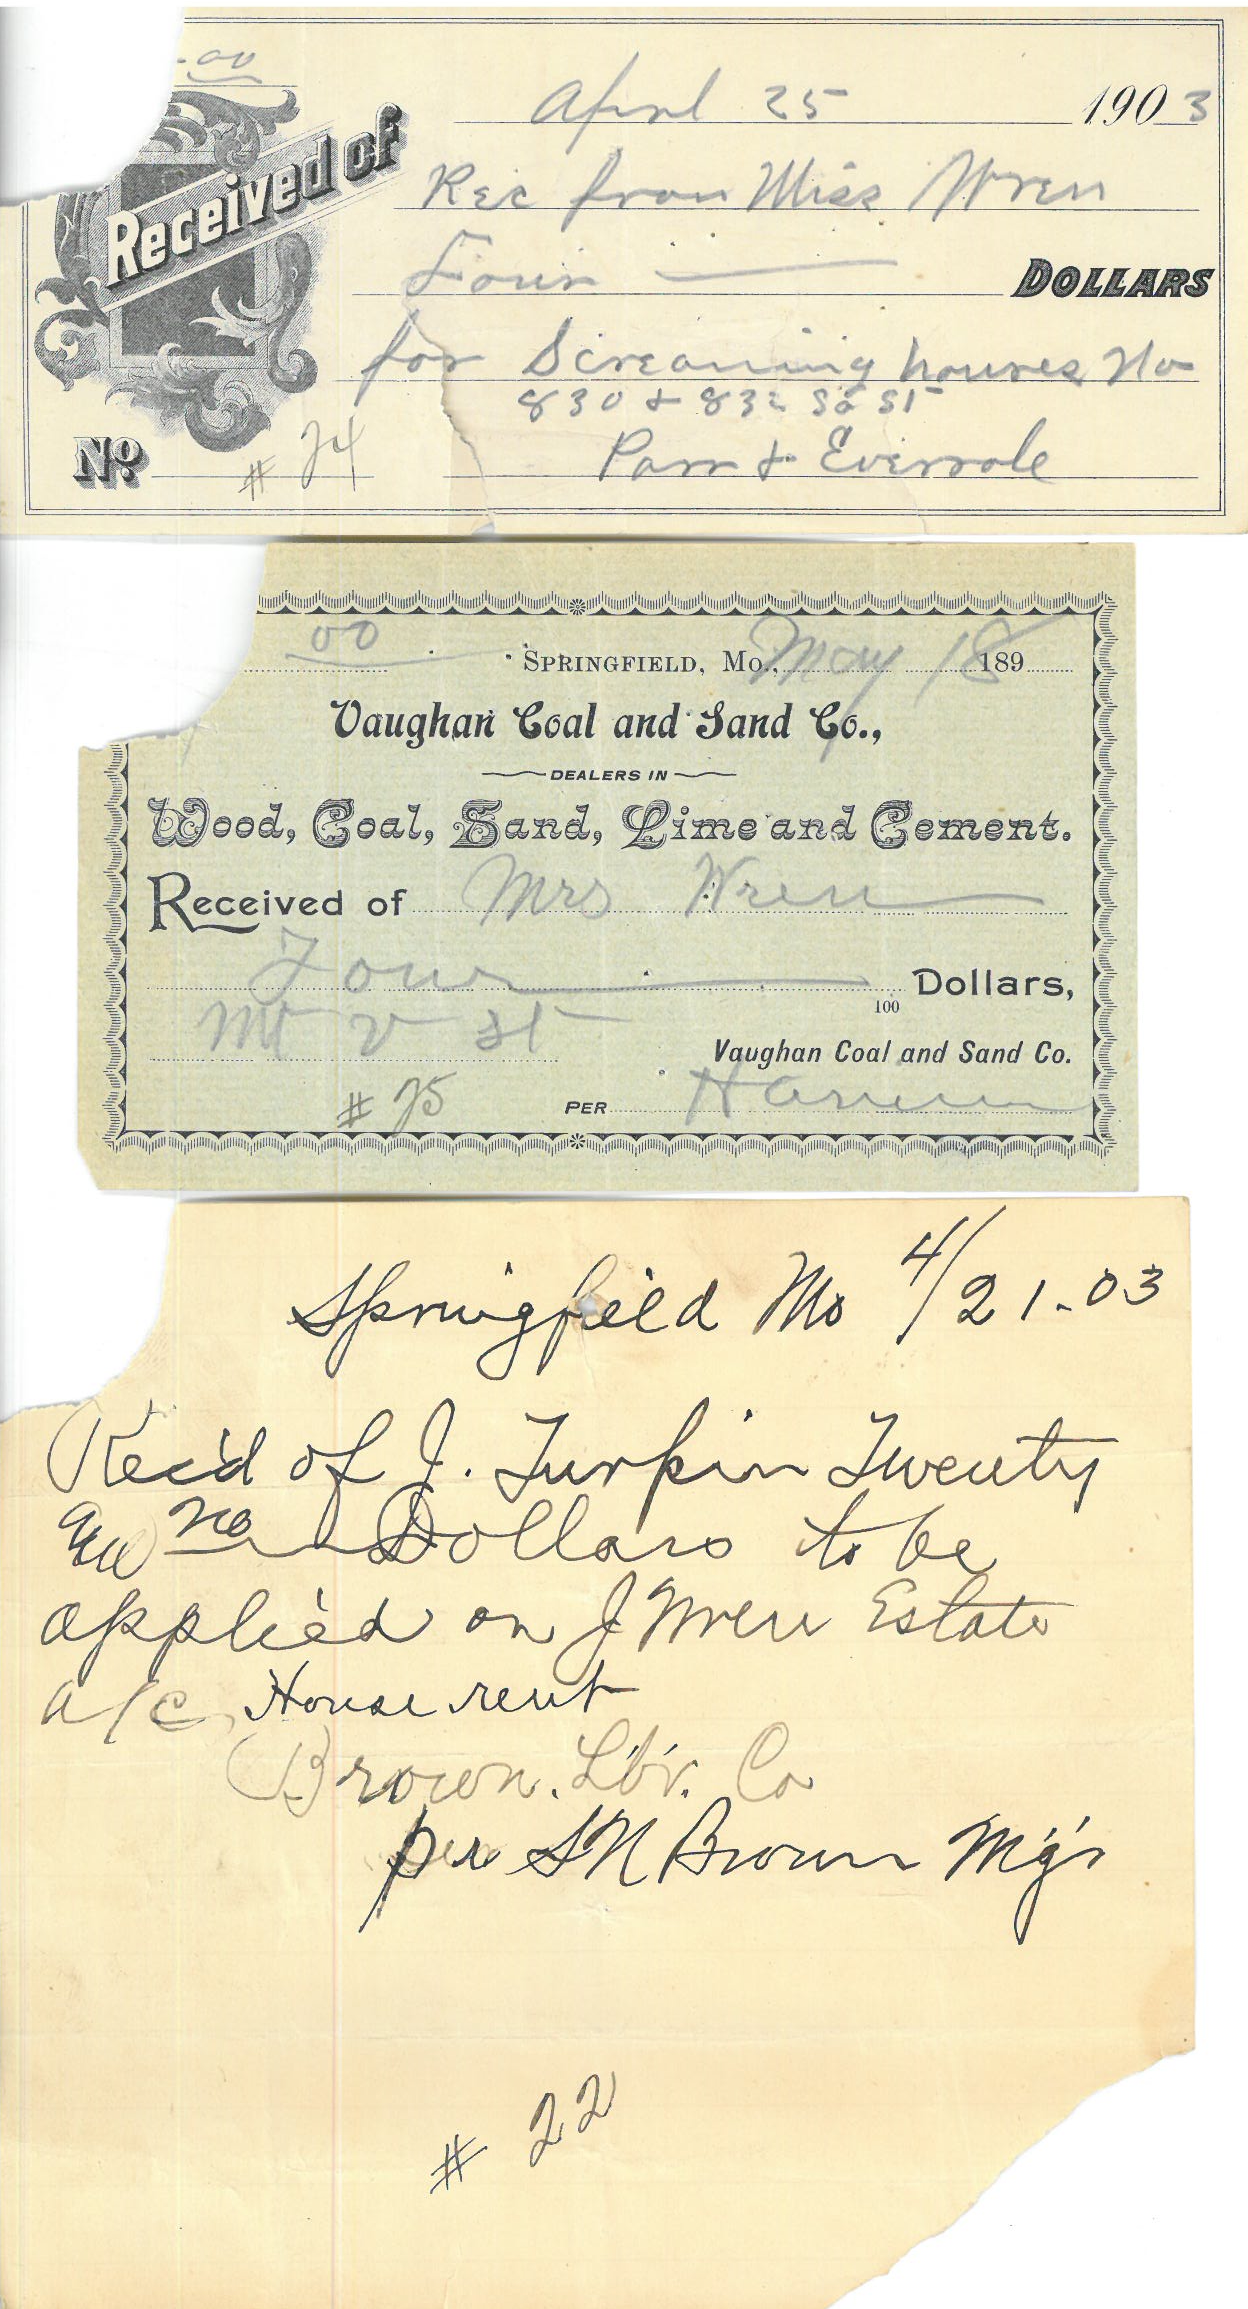 .00
April 25 1903
Received of
Rec from Miss Wren
Four DOLLARS
for Screaning houses No
830 & 832 So St
No. # 24
Parr & Eversole
00
SPRINGFIELD, Mo., May 18 189
Vaughan Coal and Sand Co.,
DEALERS IN
Wood, Coal, Sand, Lime and Cement.
Received of Mrs Wren
Four 100 Dollars,
Mt V st
Vaughan Coal and Sand Co.
# 25
PER
Springfield Mo 4/21-03
Rec'd of J. Turpin Twenty
no Dollars to be
applied on J Wren Estate
a/c House rent
Brown. Lb'r. Co
per S N Brown M'g'r
# 22